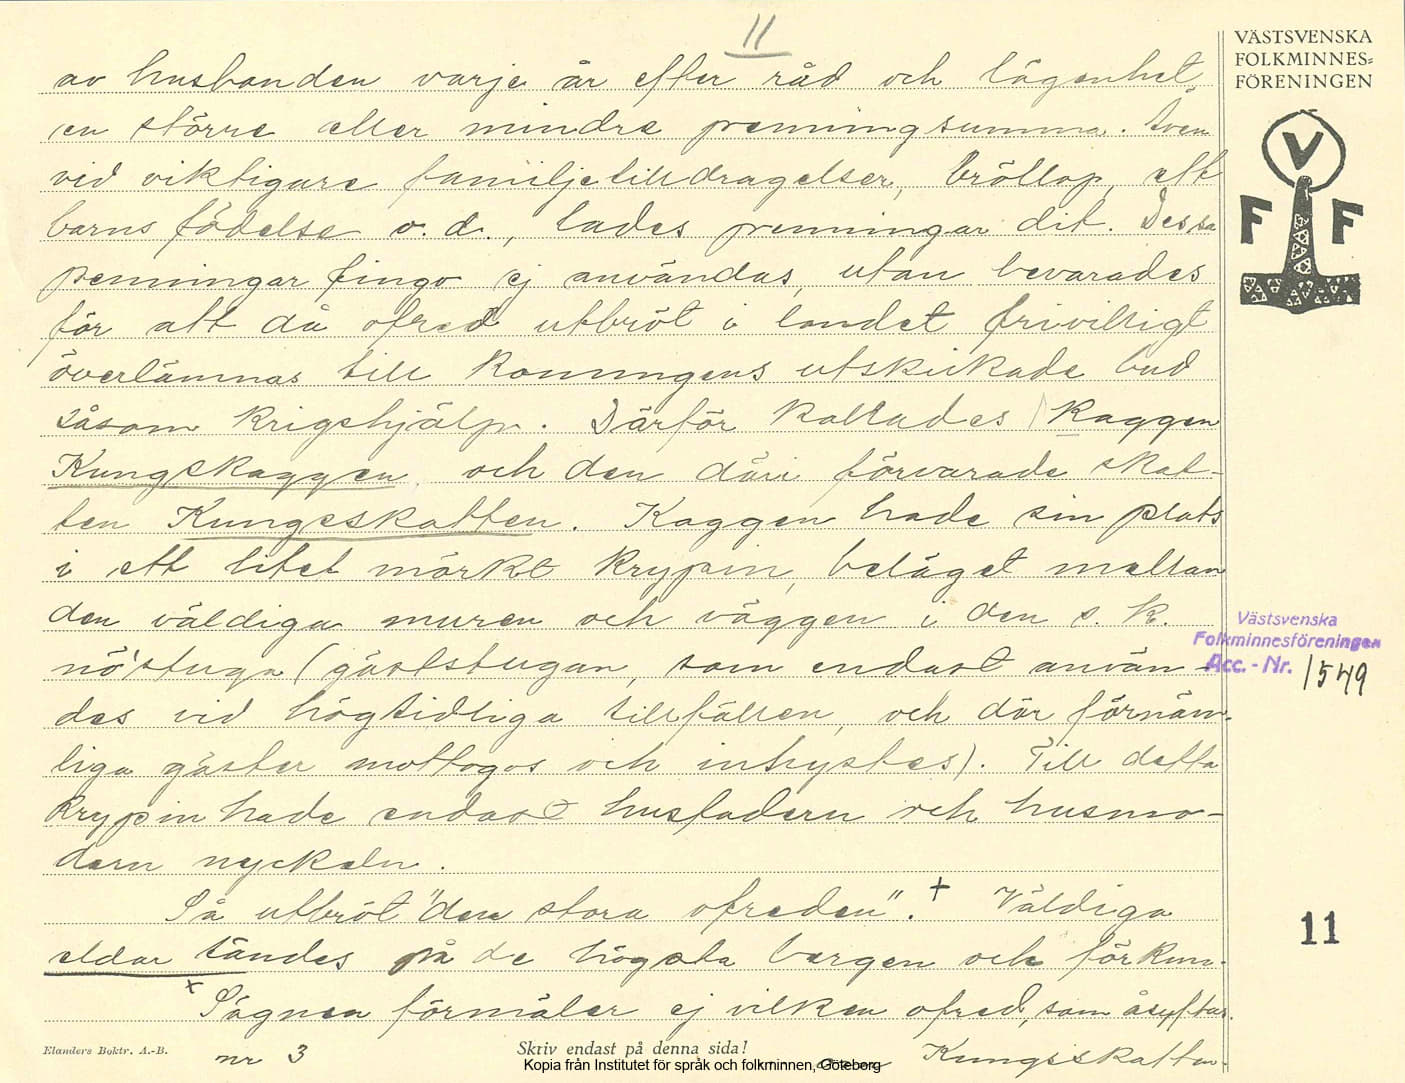 11
VÄSTSVENSKA
FOLKMINNES=
FÖRENINGEN
V
F F
av husbonden varje år efter råd och lägenhet
en större eller mindre penningsumma. Även
vid viktigare familjetilldragelser, bröllop, ett
barns födelse o.d., lades penningar dit. Dessa
penningar fingo ej användas, utan bevarades
för att då ofred utbröt i landet frivilligt
överlämnas till konungens utskickade bud
såsom krigshjälp. Därför kallades kaggen
Kungskaggen, och den däri förvarade skat-
ten Kungsskatten. Kaggen hade sin plats
i ett litet mörkt krypin, beläget mellan
den väldiga muren och väggen i den s. k.
nö'stuga (gäststugan, som endast använ-
des vid högtidliga tillfällen, och där förnäm-
liga gäster mottogos och inhystes). Till detta
krypin hade endast husfadern och husmo-
dern nyckeln.
Så utbröt "den stora ofreden".+ Väldiga
eldar tändes på de högsta bergen och förkun-
+ Sägnen förmäler ej vilken ofred, som åsyftas.
Västsvenska
Folkminnesföreningen
Acc. - Nr. 1549
11
Elanders Boktr. A.-B.
nr 3
Skriv endast på denna sida!
Kungsskatten
Kopia från Institutet för språk och folkminnen, Göteborg